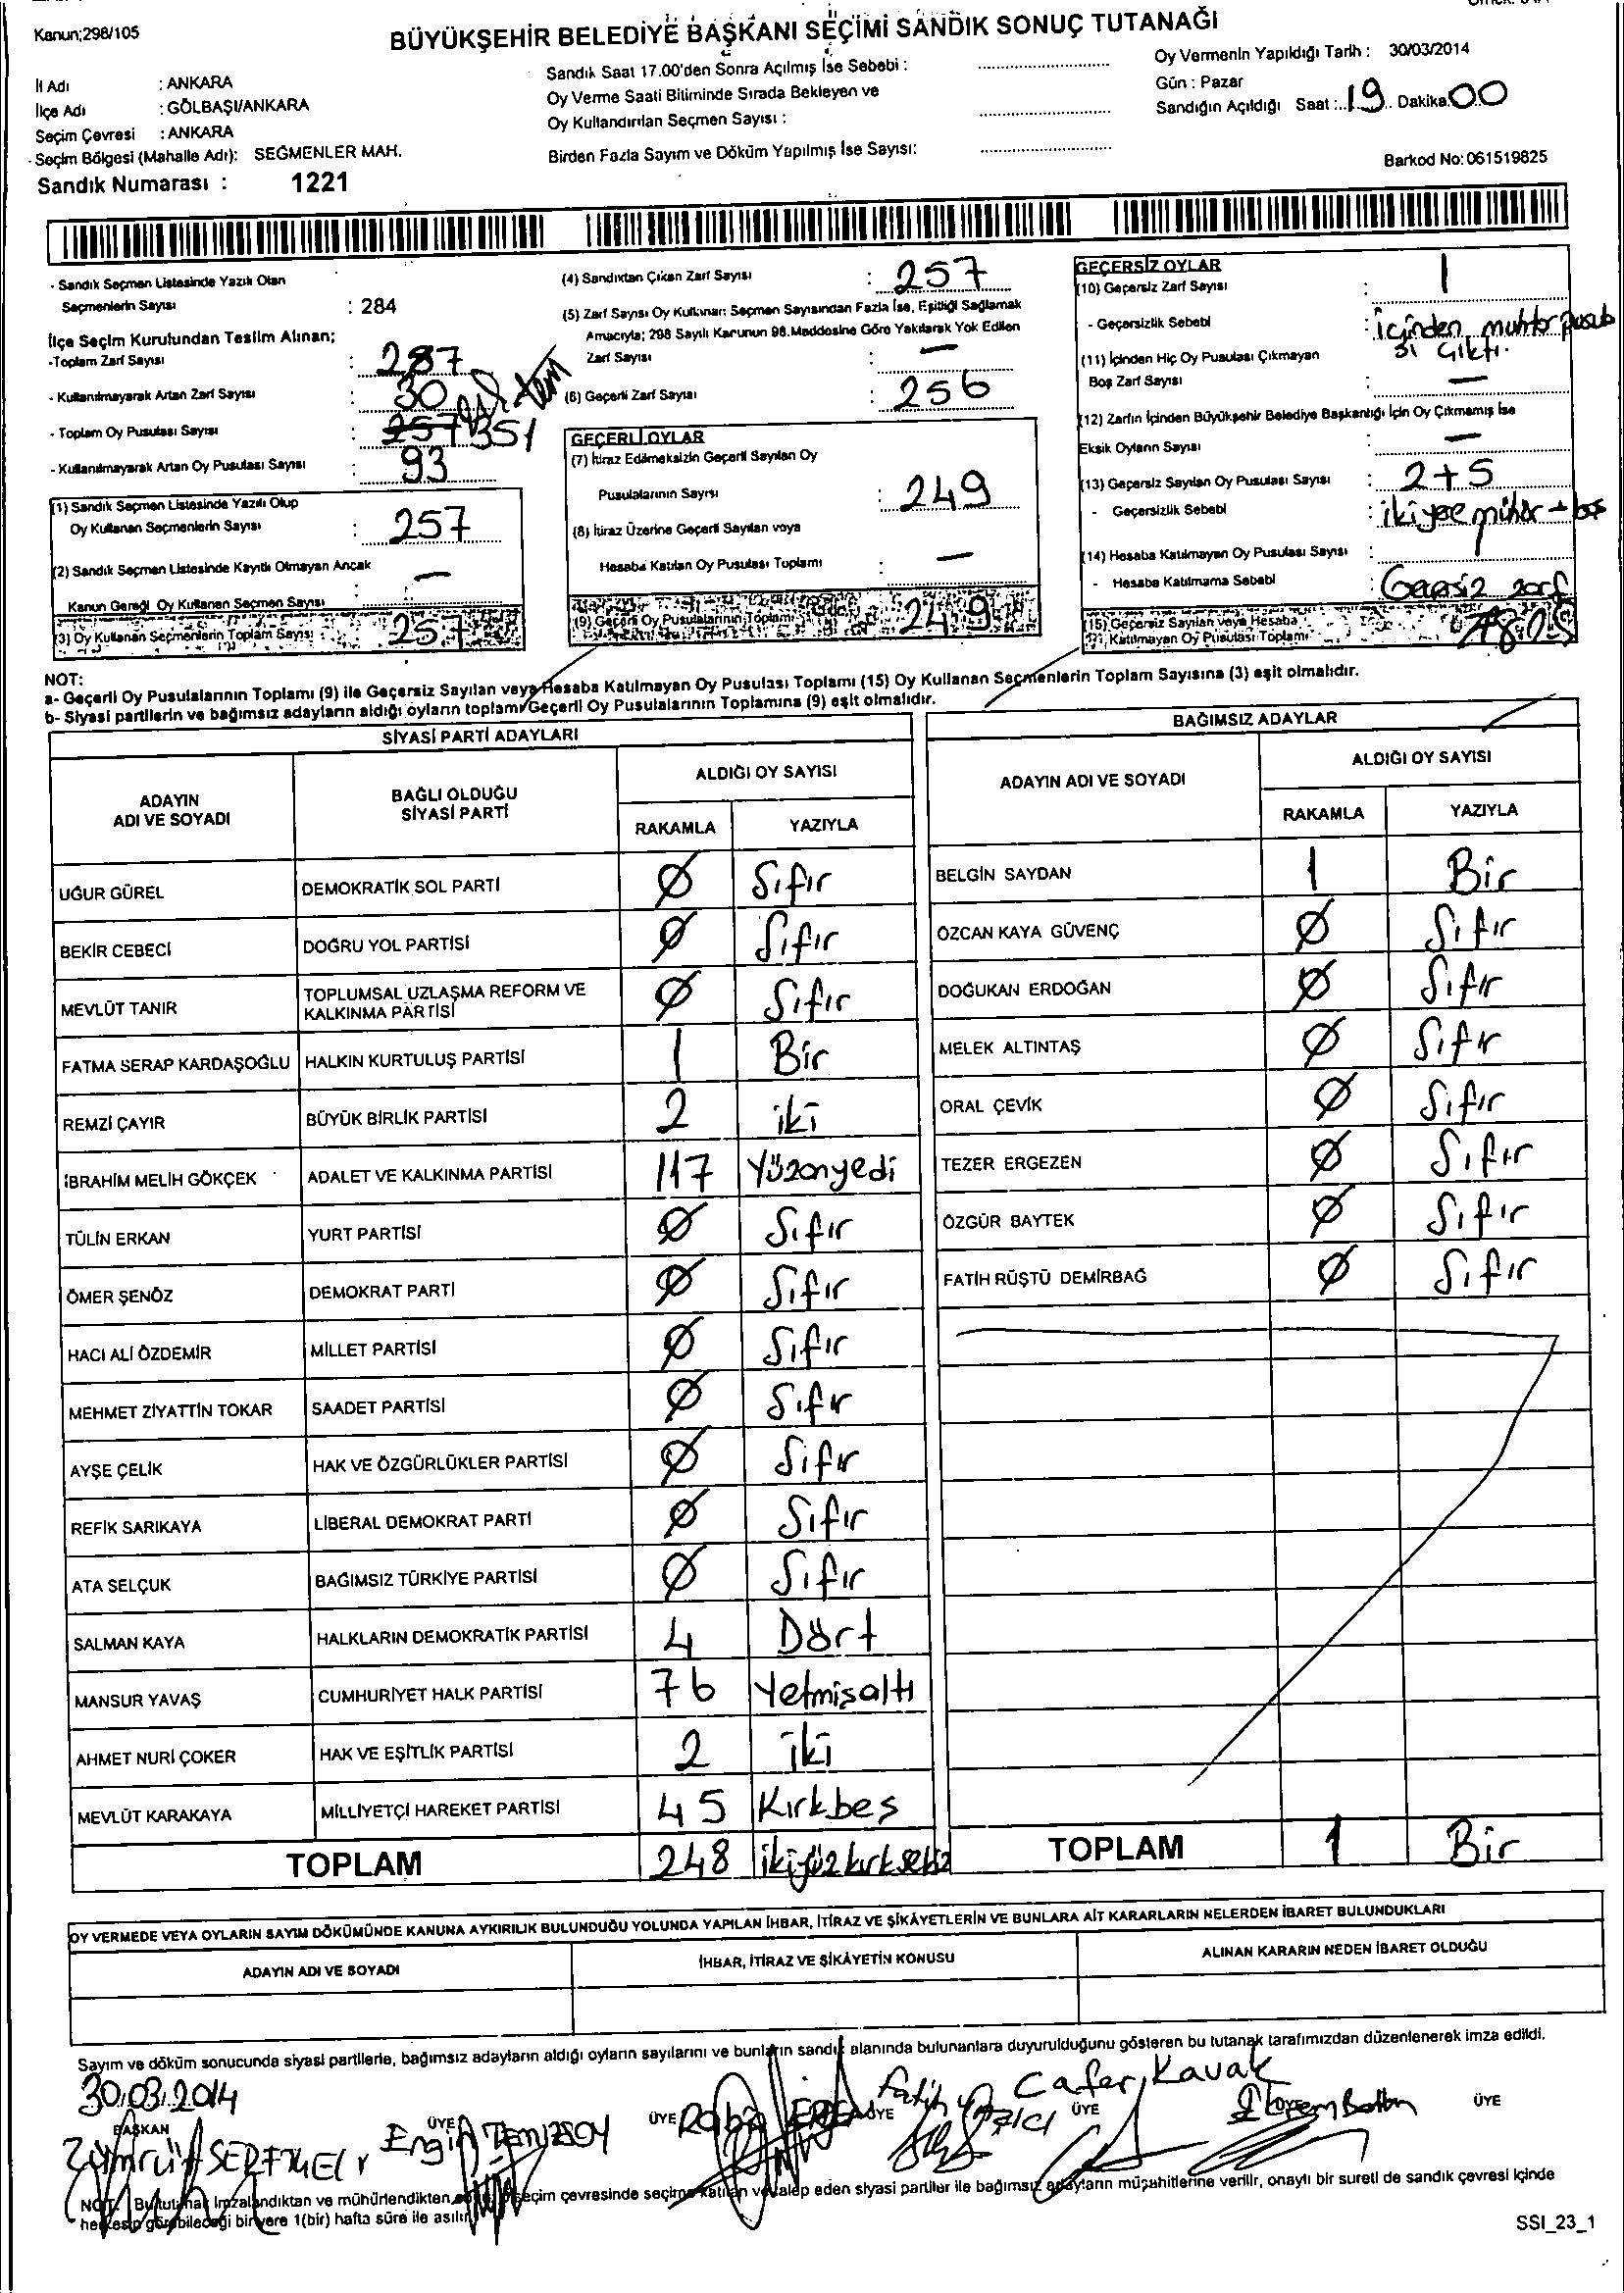 Kanun;298/105
BÜYÜKŞEHİR BELEDİYE BAŞKANI SEÇİMİ SANDIK SONUÇ TUTANAĞI
İl Adı : ANKARA
İlçe Adı : GÖLBAŞI/ANKARA
Seçim Çevresi : ANKARA
Seçim Bölgesi (Mahalle Adı): SEĞMENLER MAH.
Sandık Numarası : 1221
Sandık Saat 17.00'den Sonra Açılmış İse Sebebi :
Oy Verme Saati Bitiminde Sırada Bekleyen ve
Oy Kullandırılan Seçmen Sayısı :
Birden Fazla Sayım ve Döküm Yapılmış İse Sayısı:
Oy Vermenin Yapıldığı Tarih : 30/03/2014
Gün : Pazar
Sandığın Açıldığı Saat : 19 Dakika 00
Barkod No: 061519825
- Sandık Seçmen Listesinde Yazılı Olan
Seçmenlerin Sayısı : 284
İlçe Seçim Kurulundan Teslim Alınan;
-Toplam Zarf Sayısı : 287
- Kullanılmayarak Artan Zarf Sayısı : 30
- Toplam Oy Pusulası Sayısı : 257 351
- Kullanılmayarak Artan Oy Pusulası Sayısı : 93
(1) Sandık Seçmen Listesinde Yazılı Olup
Oy Kullanan Seçmenlerin Sayısı : 257
(2) Sandık Seçmen Listesinde Kayıtlı Olmayan Ancak
Kanun Gereği Oy Kullanan Seçmen Sayısı : —
(3) Oy Kullanan Seçmenlerin Toplam Sayısı : 257
(4) Sandıktan Çıkan Zarf Sayısı : 257
(5) Zarf Sayısı Oy Kullanan Seçmen Sayısından Fazla İse, Eşitliği Sağlamak
Amacıyla; 298 Sayılı Kanunun 98.Maddesine Göre Yakılarak Yok Edilen
Zarf Sayısı : —
(6) Geçerli Zarf Sayısı : 256
GEÇERLİ OYLAR
(7) İtiraz Edilmeksizin Geçerli Sayılan Oy
Pusulalarının Sayısı : 249
(8) İtiraz Üzerine Geçerli Sayılan veya
Hesaba Katılan Oy Pusulası Toplamı : —
(9) Geçerli Oy Pusulalarının Toplamı : 249
GEÇERSİZ OYLAR
(10) Geçersiz Zarf Sayısı : 1
- Geçersizlik Sebebi : içinden muhtar pusula
sı çıktı.
(11) İçinden Hiç Oy Pusulası Çıkmayan
Boş Zarf Sayısı : —
(12) Zarfın İçinden Büyükşehir Belediye Başkanlığı İçin Oy Çıkmamış İse
Eksik Oyların Sayısı : —
(13) Geçersiz Sayılan Oy Pusulası Sayısı : 2+5
- Geçersizlik Sebebi : iki yere mühür + boş
(14) Hesaba Katılmayan Oy Pusulası Sayısı :
- Hesaba Katılmama Sebebi : Geçersiz zarf
(15) Geçersiz Sayılan veya Hesaba
Katılmayan Oy Pusulası Toplamı :
NOT:
a- Geçerli Oy Pusulalarının Toplamı (9) ile Geçersiz Sayılan veya Hesaba Katılmayan Oy Pusulası Toplamı (15) Oy Kullanan Seçmenlerin Toplam Sayısına (3) eşit olmalıdır.
b- Siyasi partilerin ve bağımsız adayların aldığı oyların toplamı Geçerli Oy Pusulalarının Toplamına (9) eşit olmalıdır.
SİYASİ PARTİ ADAYLARI
ADAYIN ADI VE SOYADI BAĞLI OLDUĞU SİYASİ PARTİ ALDIĞI OY SAYISI
RAKAMLA YAZIYLA
UĞUR GÜREL DEMOKRATİK SOL PARTİ Ø Sıfır
BEKİR CEBECİ DOĞRU YOL PARTİSİ Ø Sıfır
MEVLÜT TANIR TOPLUMSAL UZLAŞMA REFORM VE KALKINMA PARTİSİ Ø Sıfır
FATMA SERAP KARDAŞOĞLU HALKIN KURTULUŞ PARTİSİ 1 Bir
REMZİ ÇAYIR BÜYÜK BİRLİK PARTİSİ 2 iki
İBRAHİM MELİH GÖKÇEK ADALET VE KALKINMA PARTİSİ 117 Yüzonyedi
TÜLİN ERKAN YURT PARTİSİ Ø Sıfır
ÖMER ŞENÖZ DEMOKRAT PARTİ Ø Sıfır
HACI ALİ ÖZDEMİR MİLLET PARTİSİ Ø Sıfır
MEHMET ZİYATTİN TOKAR SAADET PARTİSİ Ø Sıfır
AYŞE ÇELİK HAK VE ÖZGÜRLÜKLER PARTİSİ Ø Sıfır
REFİK SARIKAYA LİBERAL DEMOKRAT PARTİ Ø Sıfır
ATA SELÇUK BAĞIMSIZ TÜRKİYE PARTİSİ Ø Sıfır
SALMAN KAYA HALKLARIN DEMOKRATİK PARTİSİ 4 Dört
MANSUR YAVAŞ CUMHURİYET HALK PARTİSİ 76 Yetmişaltı
AHMET NURİ ÇOKER HAK VE EŞİTLİK PARTİSİ 2 iki
MEVLÜT KARAKAYA MİLLİYETÇİ HAREKET PARTİSİ 45 Kırkbeş
TOPLAM 248 ikiyüzkırksekiz
BAĞIMSIZ ADAYLAR
ADAYIN ADI VE SOYADI ALDIĞI OY SAYISI
RAKAMLA YAZIYLA
BELGİN SAYDAN 1 Bir
ÖZCAN KAYA GÜVENÇ Ø Sıfır
DOĞUKAN ERDOĞAN Ø Sıfır
MELEK ALTINTAŞ Ø Sıfır
ORAL ÇEVİK Ø Sıfır
TEZER ERGEZEN Ø Sıfır
ÖZGÜR BAYTEK Ø Sıfır
FATİH RÜŞTÜ DEMİRBAĞ Ø Sıfır
TOPLAM 1 Bir
OY VERMEDE VEYA OYLARIN SAYIM DÖKÜMÜNDE KANUNA AYKIRILIK BULUNDUĞU YOLUNDA YAPILAN İHBAR, İTİRAZ VE ŞİKÂYETLERİN VE BUNLARA AİT KARARLARIN NELERDEN İBARET BULUNDUKLARI
ADAYIN ADI VE SOYADI İHBAR, İTİRAZ VE ŞİKÂYETİN KONUSU ALINAN KARARIN NEDEN İBARET OLDUĞU
Sayım ve döküm sonucunda siyasi partilerle, bağımsız adayların aldığı oyların sayılarını ve bunların sandık alanında bulunanlara duyurulduğunu gösteren bu tutanak tarafımızdan düzenlenerek imza edildi.
30.03.2014
BAŞKAN ÜYE ÜYE ÜYE ÜYE ÜYE ÜYE
Zümrüt Engin Fatih Cafer Kavak
NOT: Bu tutanak imzalandıktan ve mühürlendikten sonra seçim çevresinde seçime katılan ve talep eden siyasi partiler ile bağımsız adayların müşahitlerine verilir, onaylı bir sureti de sandık çevresi içinde
herkesin görebileceği bir yere 1(bir) hafta süre ile asılır.
SSI_23_1